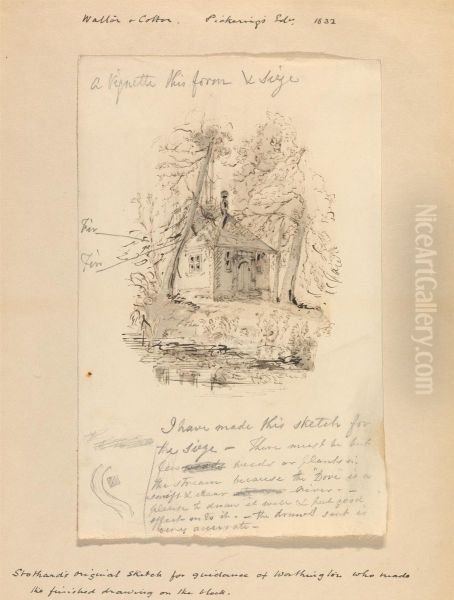 Walton & Cotton. Pickering's Edn. 1832
A Vignette this form & Size
Fir
Fir
I have made this sketch for
the Size — There must be but
few weeds or plants in
the stream because the "Dove" is a
swift & clear river —
please to draw it well & put good
effect on to it. — the sent is
very accurate —
Stothard's original sketch for guidance of Worthington who made
the finished drawing on the block.
NiceArtGallery.com